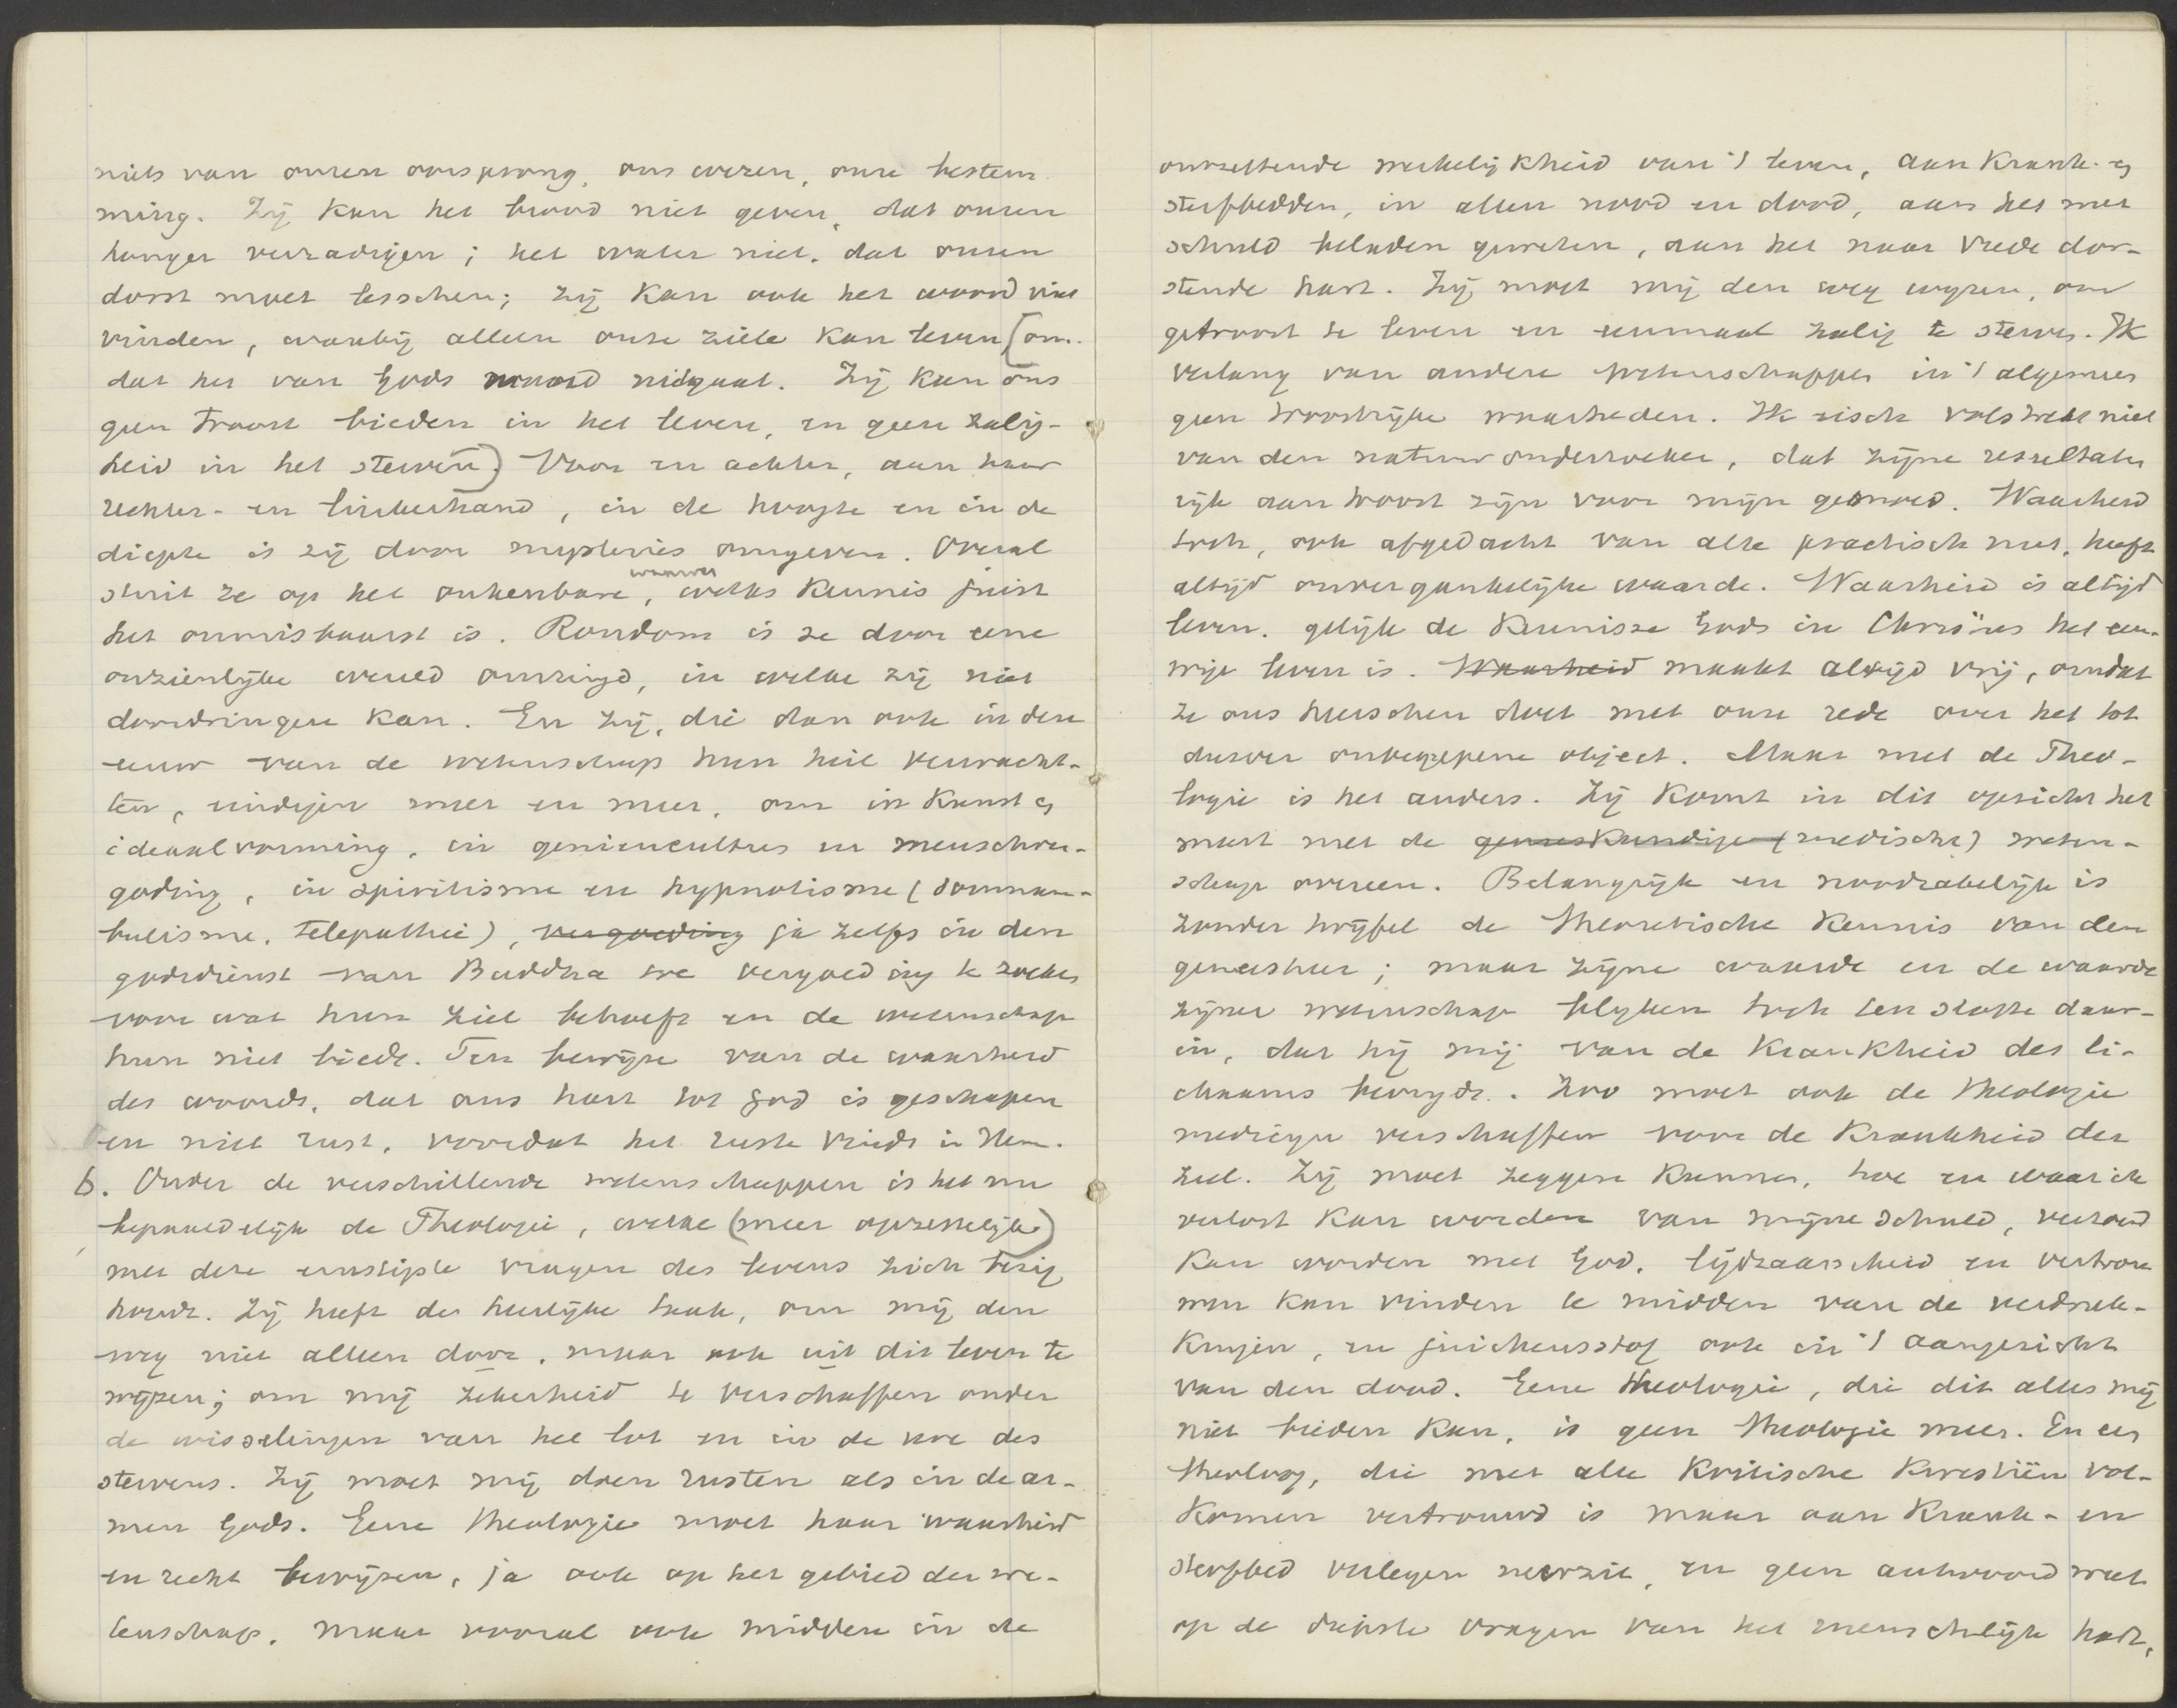 niets van onzen oorsprong, ons wezen, onze bestem-
ming. Zij kan het brood niet geven, dat onzen
honger verzadigen; het water niet, dat onzen
dorst moet lesschen; zij kan ook het woord niet
vinden, waarbij alleen onze ziele kan leven (om-
dat het van Gods mond uitgaat. Zij kan ons
geen troost bieden in het leven, en geen zalig-
heid in het sterven). Voor en achter, aan haar
rechter- en linkerhand, in de hoogte en in de
diepte is zij door mysteries omgeven. Overal
stuit ze op het onkenbare, welks kennis juist
het onmisbaarst is. Rondom is ze door eene
onzienlijke wereld omringd, in welke zij niet
doordringen kan. En zij, die dan ook in deze
eeuw van de wetenschap hun heil verwacht-
ten, eindigen meer en meer, om in kunst en
ideaalvorming, in geniëncultus en menschver-
goding, in spiritisme en hypnotisme (somnam-
bulisme, telepathie), vergoeding ja zelfs in den
godsdienst van Buddha vergoeding te zoeken
voor wat hun ziel behoeft en de wetenschap
hun niet biedt. Ten bewijze van de waarheid
des woords, dat ons hart tot God is geschapen
en niet rust, voordat het ruste vindt in Hem.
b. Onder de verschillende wetenschappen is het nu
bepaaldelijk de Theologie, welke (meer opzettelijk)
met deze ernstigste vragen des levens zich bezig
houdt. Zij heeft de heerlijke taak, om mij den
weg niet alleen door, maar ook uit dit leven te
wijzen; om mij zekerheid te verschaffen onder
de wisselingen van het lot en in de ure des
stervens. Zij moet mij doen rusten als in de ar-
men Gods. Eene theologie moet haar waarheid
en recht bewijzen, ja ook op het gebied der we-
tenschap, maar vooral ook midden in de
ontzettende werkelijkheid van 't leven, aan krank- en
sterfbedden, in allen nood en dood, aan het met
schuld beladen geweten, aan het naar vrede dor-
stende hart. Zij moet mij den weg wijzen, om
getroost te leven en eenmaal zalig te sterven. Ik
verlang van andere wetenschappen in 't algemeen
geen troostrijke waarheden. Ik eisch volstrekt niet
van den natuuronderzoeker, dat zijne resultaten
rijk aan troost zijn voor mijn gemoed. Waarheid
toch, ook afgedacht van alle practisch nut, heeft
altijd onvergankelijke waarde. Waarheid is altijd
leven, gelijk de kennisse Gods in Christus het eeu-
wige leven is. Waarheid maakt altijd vrij, omdat
ze ons heerschen doet met onze rede over het tot
dusver onbegrepene object. Maar met de Theo-
logie is het anders. Zij komt in dit opzicht het
meest met de geneeskundige (medische) weten-
schap overeen. Belangrijk en noodzakelijk is
zonder twijfel de theoretische kennis van den
geneesheer; maar zijne waarde en de waarde
zijner wetenschap blijken toch ten slotte daar-
in, dat hij mij van de krankheid des li-
chaams bevrijdt. Zoo moet ook de theologie
medicijn verschaffen voor de krankheid der
ziel. Zij moet zeggen kunnen, hoe en waar ik
verlost kan worden van mijne schuld, verzoend
kan worden met God, lijdzaamheid en vertrou-
wen kan vinden te midden van de verdruk-
kingen, en juichensstof ook in 't aangezicht
van den dood. Eene theologie, die dit alles mij
niet bieden kan, is geen theologie meer. En een
theoloog, die met alle kritische kwestiën vol-
komen vertrouwd is maar aan krank- en
sterfbed verlegen neerzit, en geen antwoord weet
op de diepste vragen van het menschelijk hart,